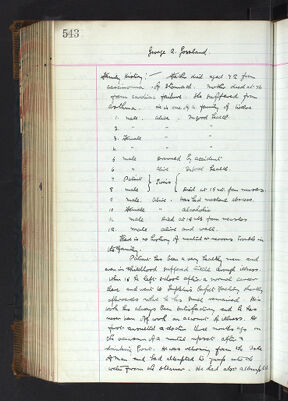 543
George A. Crosland.
Family History:— Father died aged 72 from
carcinoma of stomach. Mother died at 76
from cardiac failure. She suffered from
asthma. He is one of a family of twelve
1. male. alive. In good health
2. " " "
3. Female " "
4. " " "
5. male drowned by accident
6. " alive. In good health.
7. Patient } Twins
8. male } Died at 15 wk. from measles.
9. male. alive. Has had mental illness.
10. Female " alcoholic
11. male Died at 18 wk from measles
12. male alive and well.
There is no history of mental or nervous trouble in
the family.
Patient has been a very healthy man and
even in childhood suffered little through illness.
When 16 he left school after a normal career
there and went to
afterwards where he has since remained. His
work has always been satisfactory and he has
never been off work on account of illness. He
first consulted a doctor three months ago on
the occasion of a
drinking bout. He was
and had attempted to jump into the
water from the steamer. He had also attempted